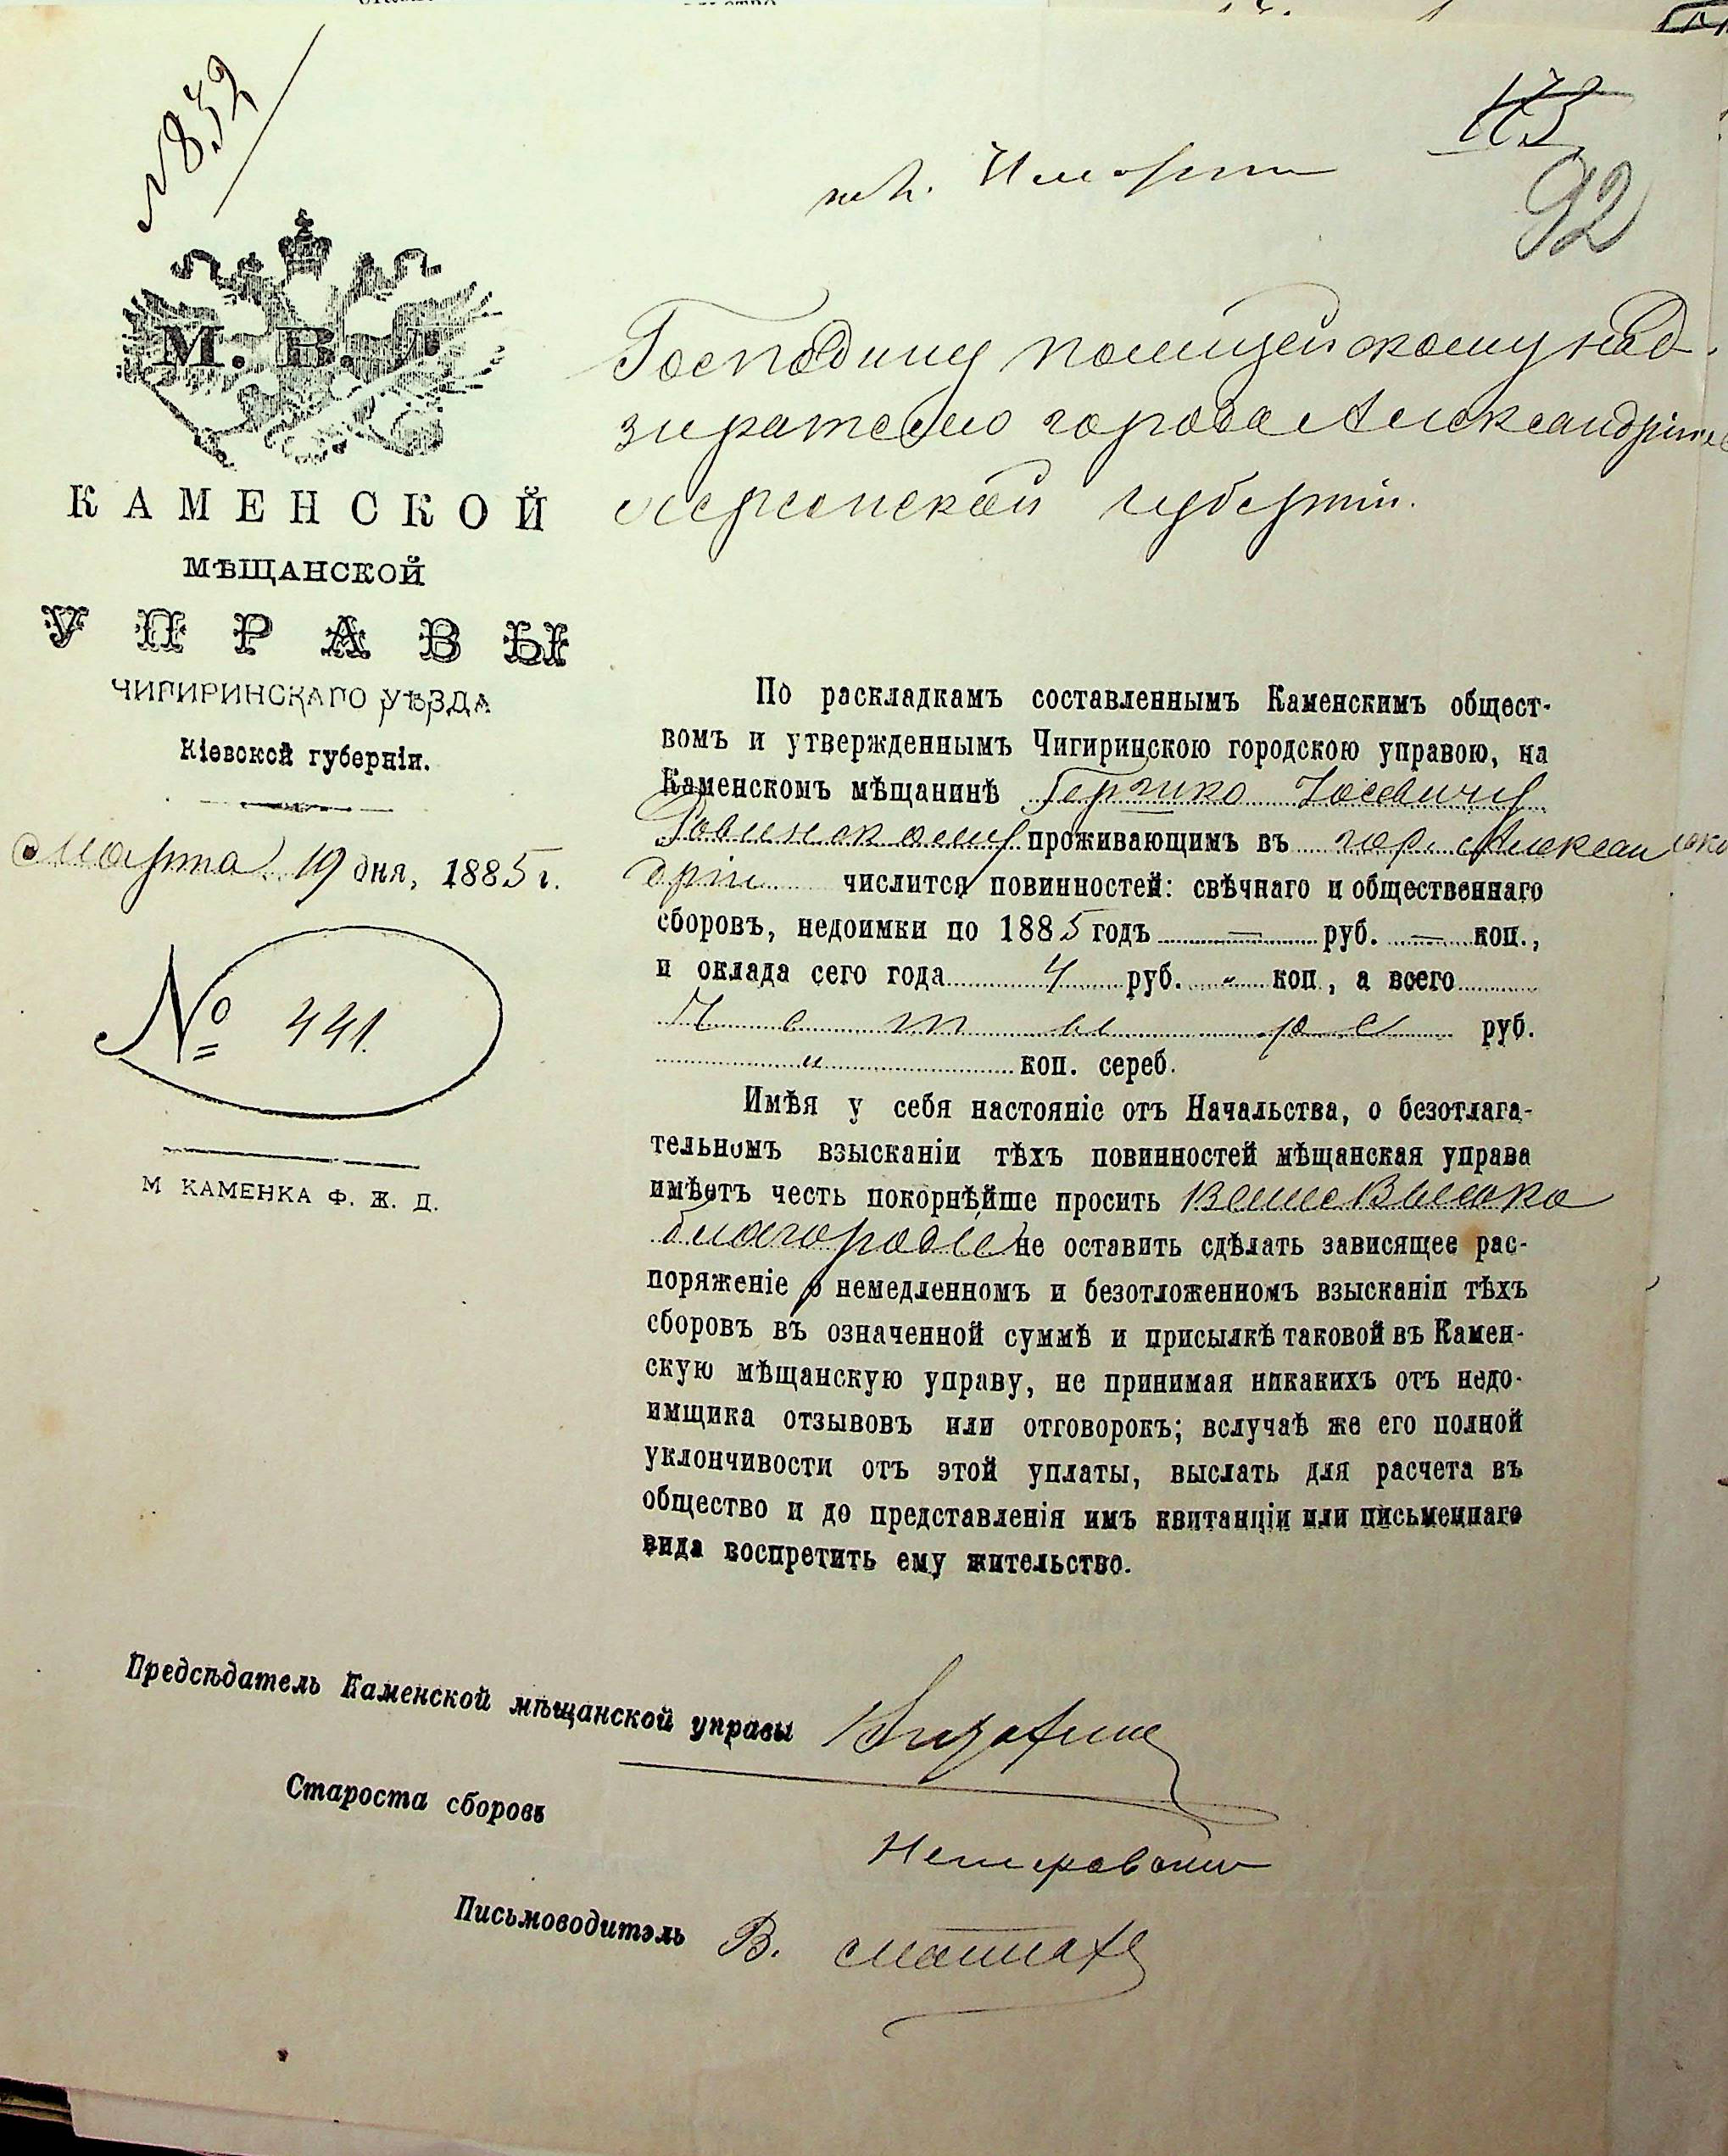 № 832
173
92
М. В. Д.
КАМЕНСКОЙ
МѢЩАНСКОЙ
УПРАВЫ
ЧИГИРИНСКАГО УѢЗДА
Кіевской губерніи.
Марта 19 дня, 1885 г.
№ 441.
М КАМЕНКА Ф. Ж. Д.
Господину полицейскому над-
зирателю города Александріи
Херсонской губерніи.
По раскладкамъ составленнымъ Каменскимъ общест-
вомъ и утвержденнымъ Чигиринскою городскою управою, на
Каменскомъ мѣщанинѣ Іосевичу
проживающимъ въ гор. Алексан
дріи числится повинностей: свѣчнаго и общественнаго
сборовъ, недоимки по 1885 годъ — руб. — коп.,
и оклада сего года 4 руб. „ коп., а всего
Четыре руб.
„ коп. сереб.
Имѣя у себя настояніе отъ Начальства, о безотлага-
тельномъ взысканіи тѣхъ повинностей мѣщанская управа
имѣетъ честь покорнѣйше просить Ваше Высоко
благородіе не оставить сдѣлать зависящее рас-
поряженіе о немедленномъ и безотложенномъ взысканіи тѣхъ
сборовъ въ означенной суммѣ и присылкѣ таковой въ Камен-
скую мѣщанскую управу, не принимая никакихъ отъ недо-
имщика отзывовъ или отговорокъ; вслучаѣ же его полной
уклончивости отъ этой уплаты, выслать для расчета въ
общество и до представленія имъ квитанціи или письменнаго
вида воспретить ему жительство.
Предсѣдатель Каменской мѣщанской управы
Староста сборовъ
Письмоводитель В.